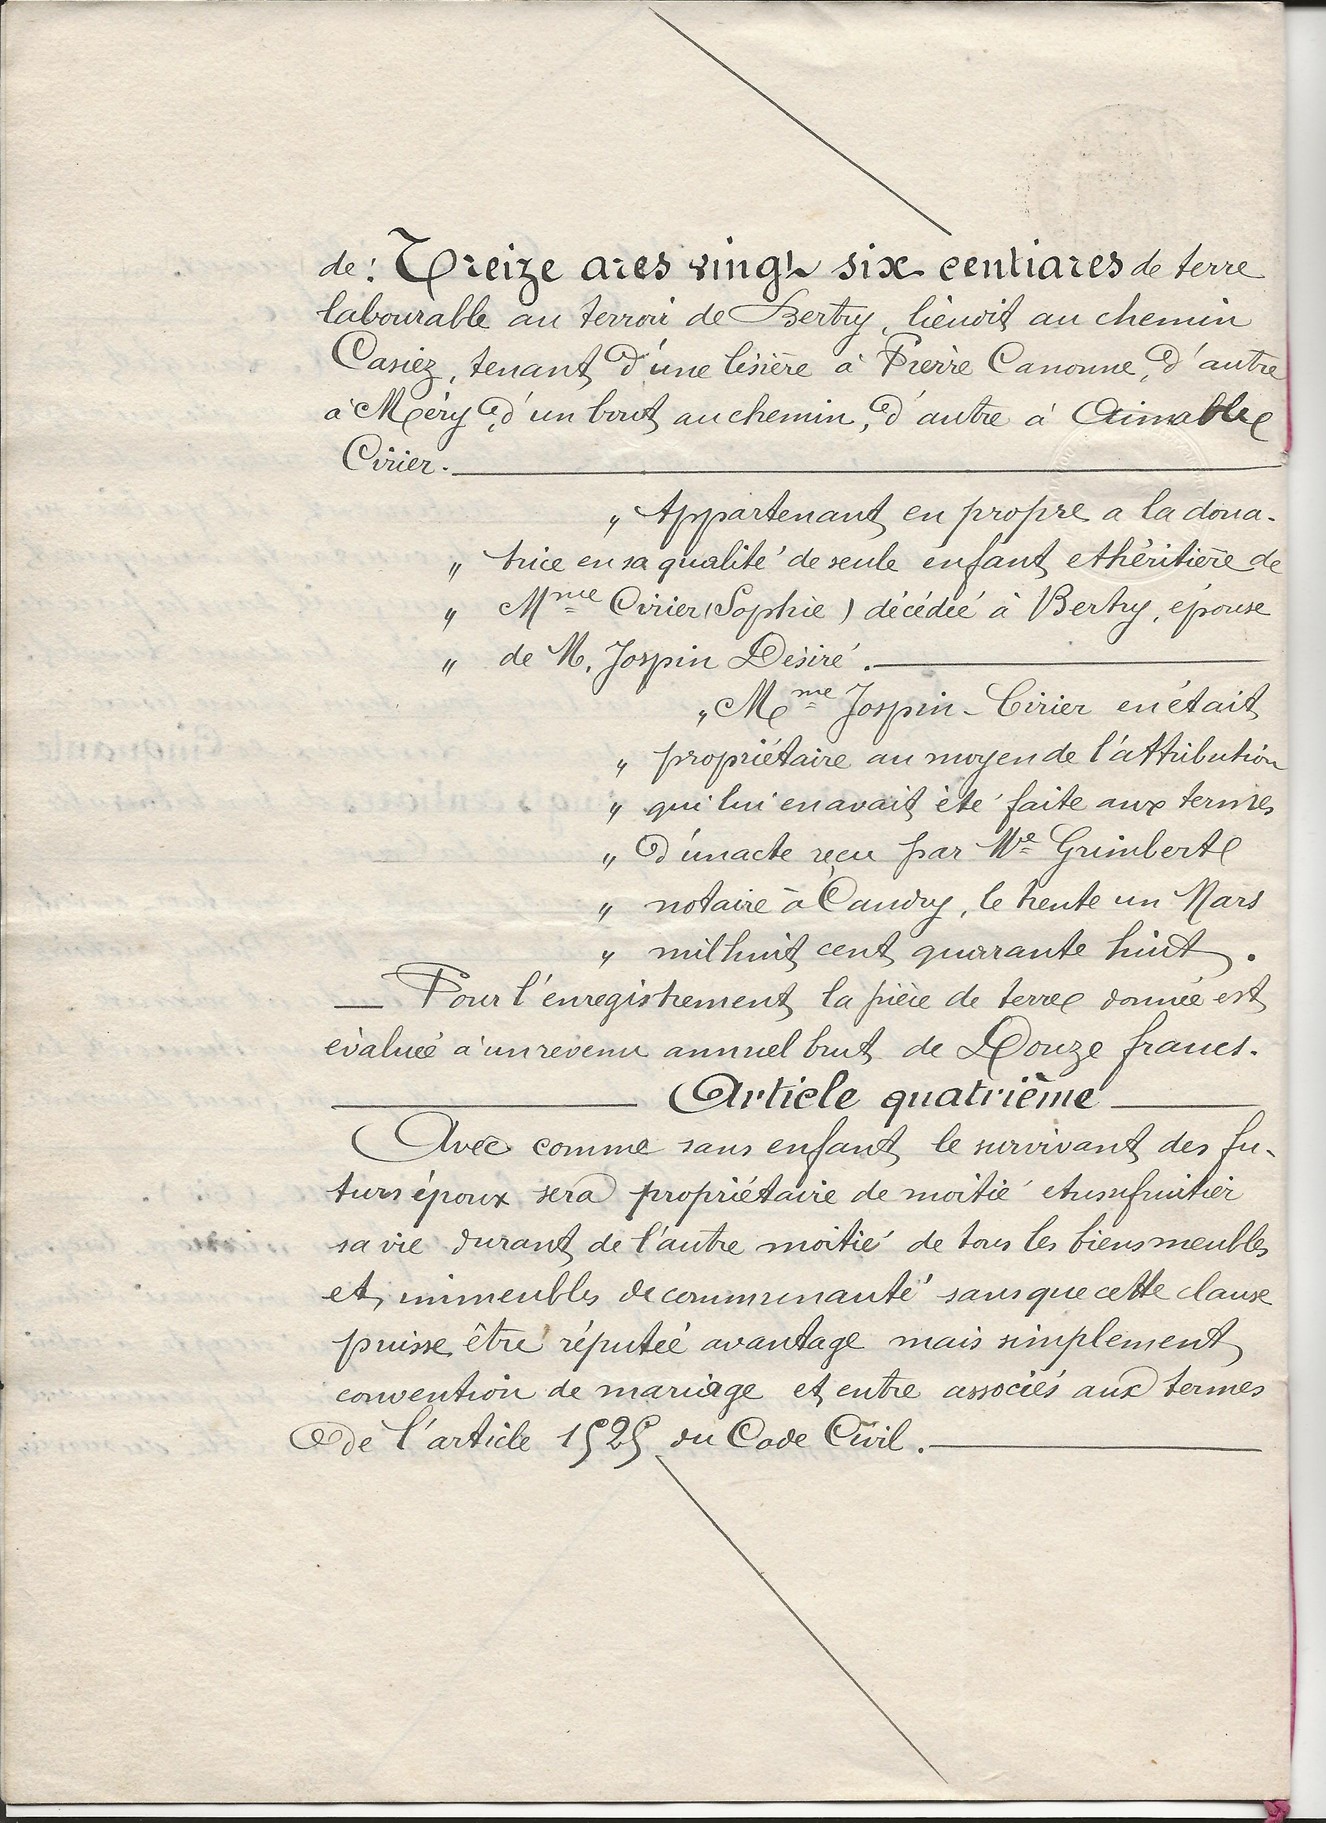 de : Treize ares vingt six centiares de terre
labourable au terroir de Bertry, lieudit au chemin
Casiez, tenant d'une lisière à Pierre Canonne, d'autre
à Méry, d'un bout au chemin, d'autre à Aimable
Cirier.
„ Appartenant en propre a la dona-
„ trice en sa qualité de seule enfant et héritière de
„ Mme Cirier (Sophie) décédée à Bertry, épouse
„ de M. Jospin Désiré.
„ Mme Jospin-Cirier en était
„ propriétaire au moyen de l'attribution
„ qui lui en avait été faite aux termes
„ d'un acte reçu par Me Grimbert
„ notaire à Caudry, le trente un Mars
„ mil huit cent quarante huit.
— Pour l'enregistrement la pièce de terre donnée est
évaluée à un revenu annuel brut de Douze francs.
Article quatrième
Avec comme sans enfant le survivant des fu-
turs époux sera propriétaire de moitié et usufruitier
sa vie durant de l'autre moitié de tous les biens meubles
et immeubles de communauté sans que cette clause
puisse être réputée avantage mais simplement
convention de mariage et entre associés aux termes
de l'article 1525 du Code Civil.